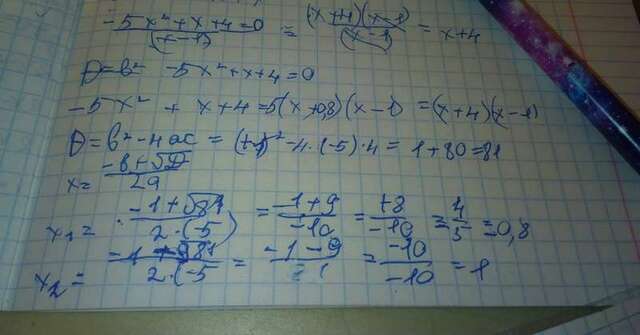 -5x²+x+4=0/(x-1) = (x+4)(x-1)/(x-1) = x+4
D=b² -5x²+x+4=0
-5x² + x+4=5(x+0,8)(x-1) =(x+4)(x-1)
D=b²-4ac = (+1)²-4·(-5)·4= 1+80=81
x= -b+√D/2a
x₁= -1+√81/2·(-5) = -1+9/-10 = +8/-10 = 4/5 = 0,8
x₂= /2·(-5 = -1-9/ = -10/-10 = 1